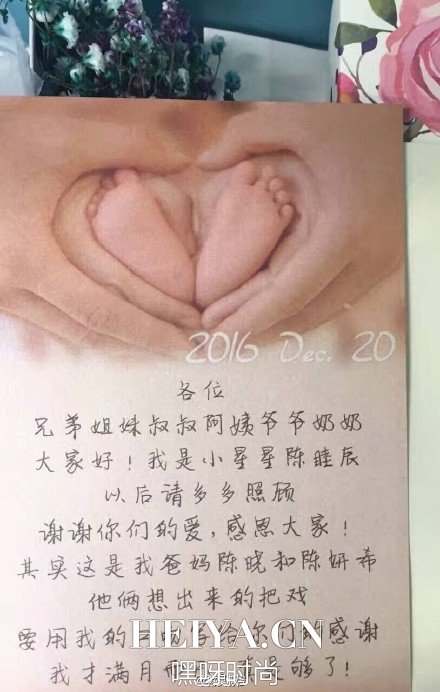 2016 Dec. 20
各位
兄弟姐妹叔叔阿姨爷爷奶奶
大家好！我是小星星陈睦辰
以后请多多照顾
谢谢你们的爱，感恩大家！
其实这是我爸妈陈晓和陈妍希
他俩想出来的把戏
要用我的口吻写给你们的感谢
HEIYA.CN
我才满月
嘿呀时尚
够了！